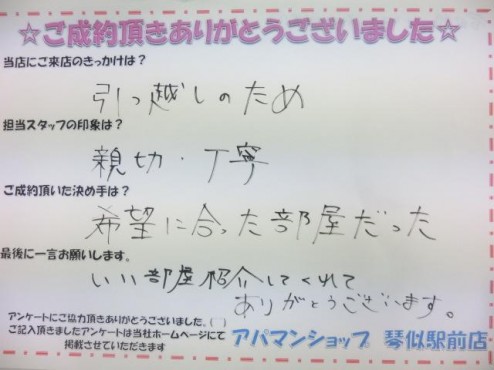 ☆ご成約頂きありがとうございました☆
当店にご来店のきっかけは？
引っ越しのため
担当スタッフの印象は？
親切・丁寧
ご成約頂いた決め手は？
希望に合った部屋だった
最後に一言お願いします。
いい部屋紹介してくれて
ありがとうございます。
アンケートにご協力頂きありがとうございました。(　)
ご記入頂きましたアンケートは当社ホームページにて
掲載させていただきます
アパマンショップ 琴似駅前店